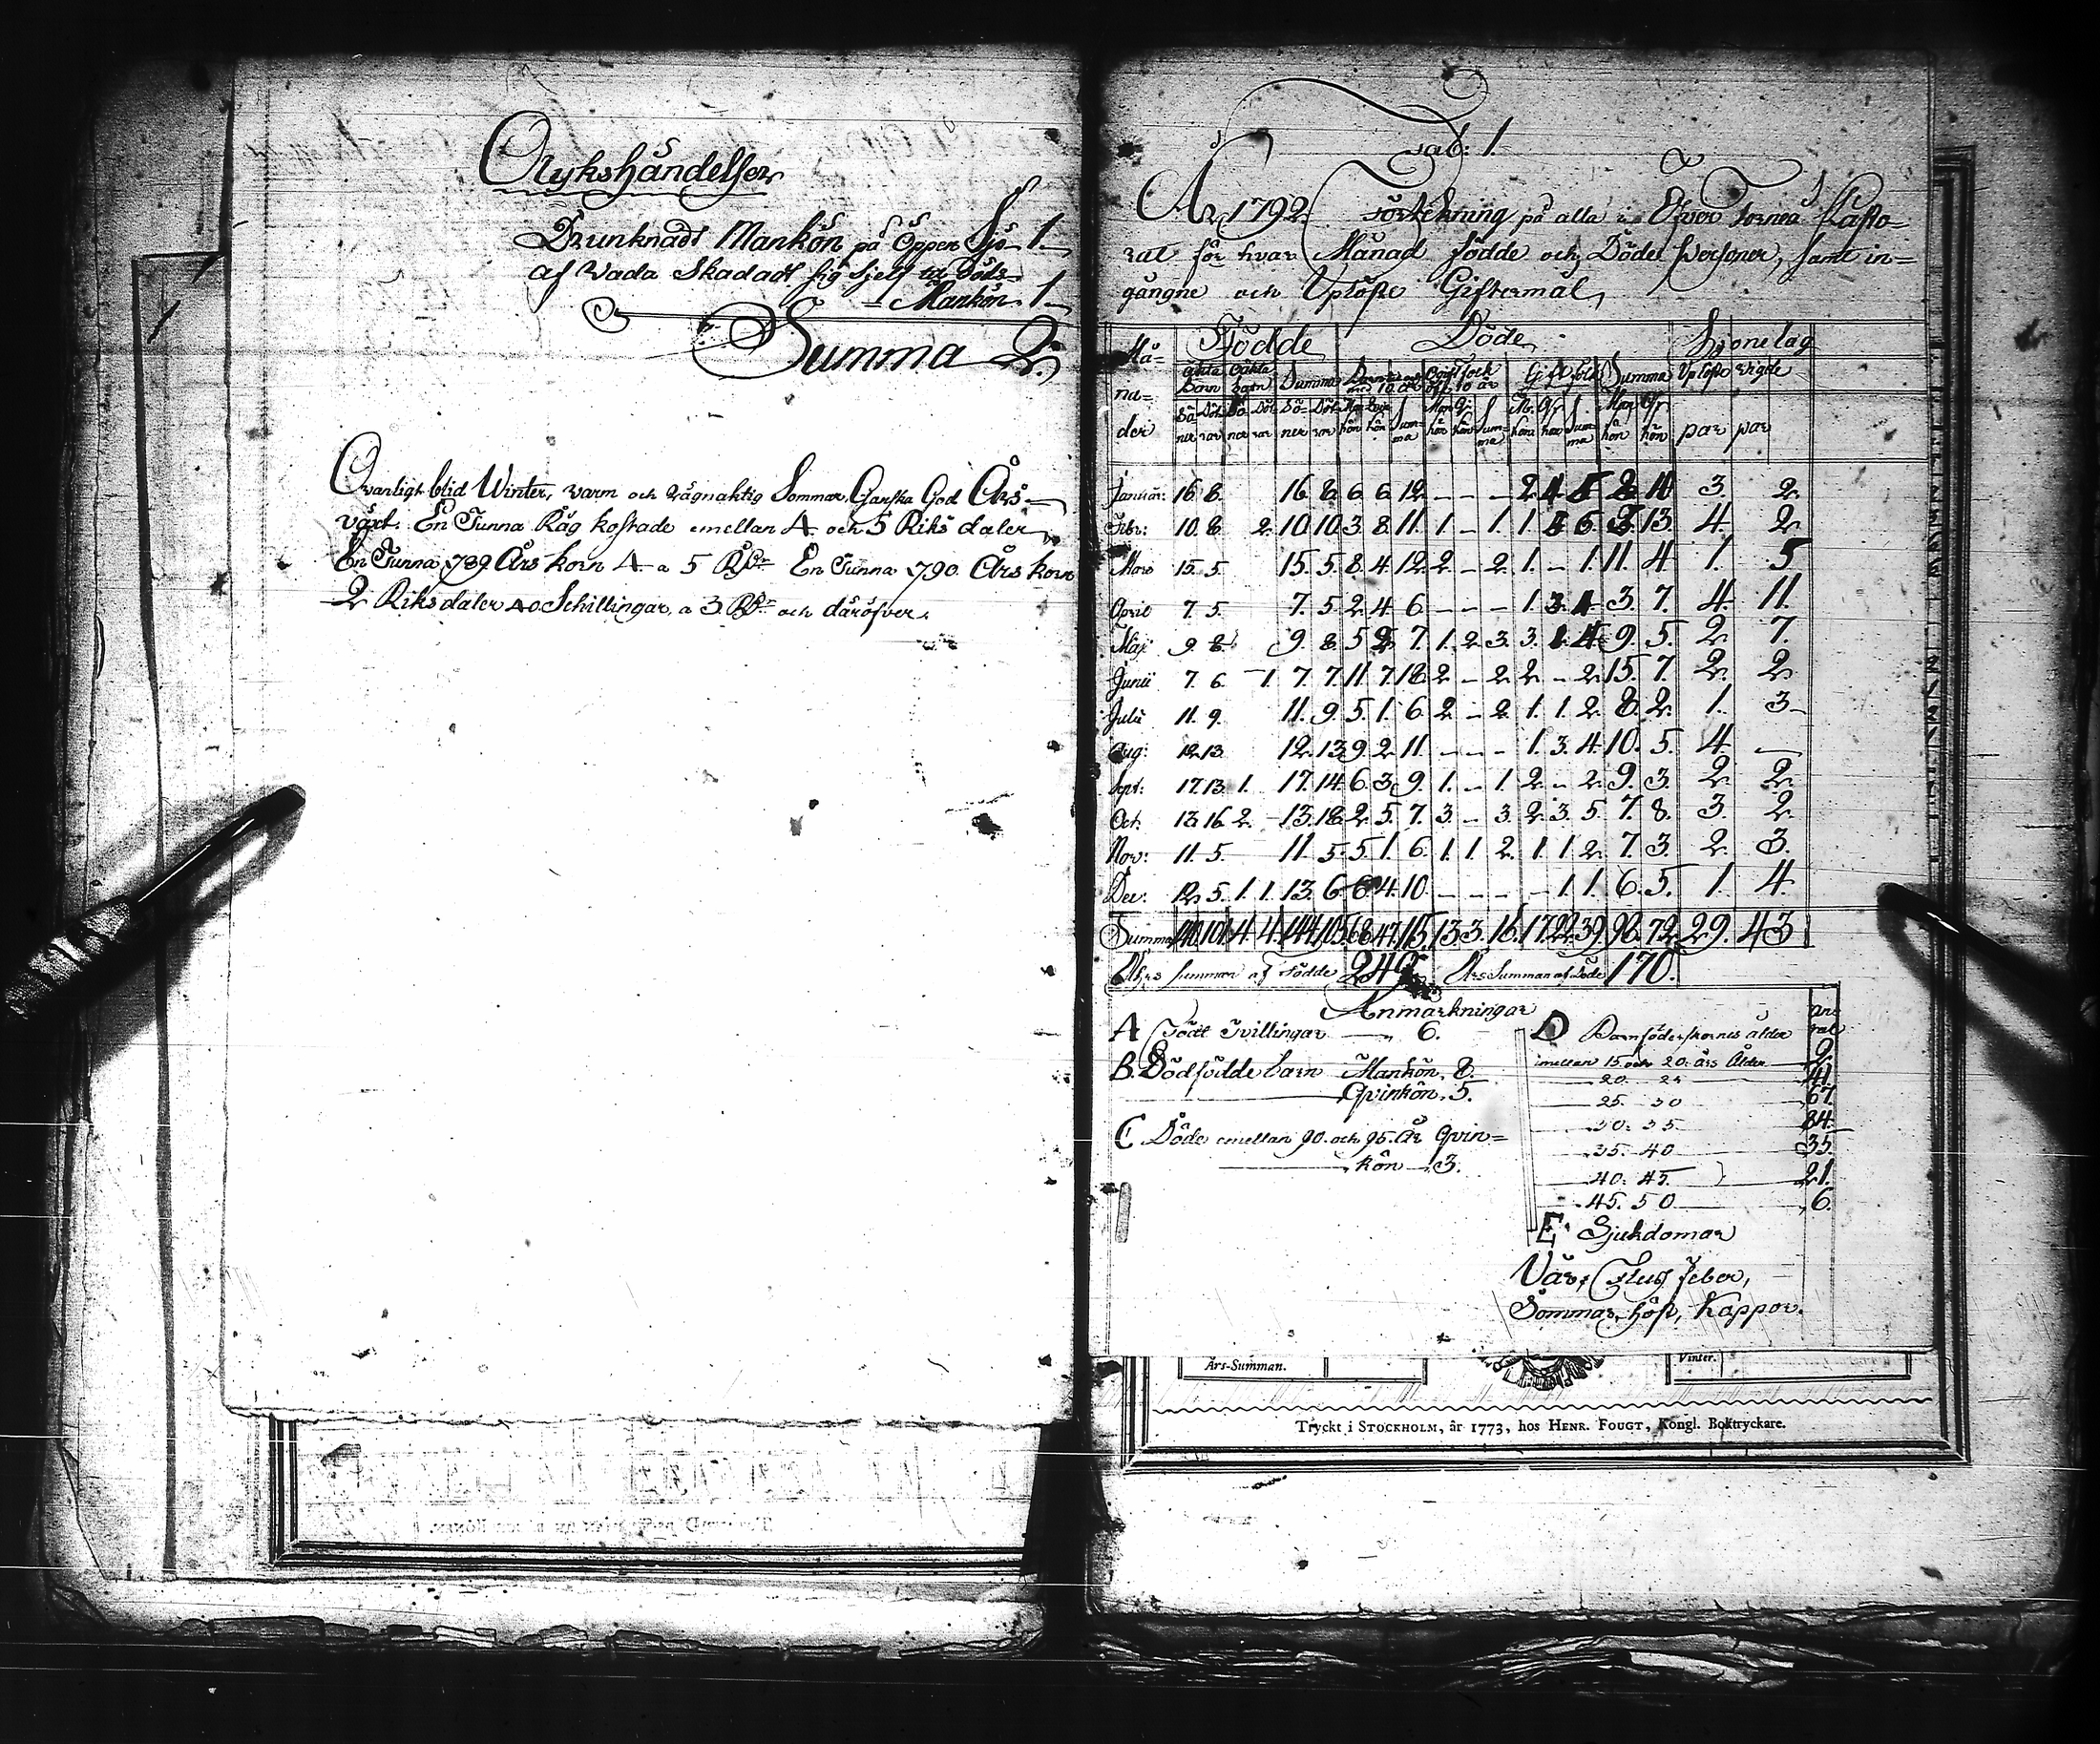 Olykshändelser
Drunknadt Mankön på Öppen Sjö 1.
af Vada Skadadt sig sjelf til döds
Mankön. 1.
Summa 2.
Ovanligt blid Winter, varm och rägnaktig Sommar, Ganska God Års-
växt. En Tunna Råg kostade emellan 4 och 5 Riksdaler
En Tunna 789 Års korn 4 a 5 En Tunna 790 Års korn
2 Riksdaler 40 Schillingar a 3 och däröfver.
Tab: 1.
År 1792 Förtekning på alla i Öfver Torneå Pasto-
rat för hvar Månad födde och Döde Personer, samt in-
gångne och Uplöste Giftermål,
Må-
na-
der
Födde Döde Hjonelag
Ächta Barn Oächta barn Summa Gift folk Summa Uplöste vigde
par par
Januar: 16 8. 16. 8. 6. 6. 12. - - - 2. 3. 2.
Febr: 10. 8. 2. 10. 10. 3. 8. 11. 1. - 1. 1. 5 6. 13. 4. 2.
Mars 15. 5. 15. 5. 8. 4. 12. 2. - 2. 1. - 1. 11. 4. 1. 5
April 7. 5. 7. 5. 2. 4. 6. - - - 1. 3. 4 3. 7. 4. 11.
Maji 9. 8. 9. 8. 5. 2. 7. 1. 2. 3. 3. 1. 4. 9. 5. 2. 7.
Junii 7. 6. 1. 7. 7. 11. 7. 18. 2. - 2. 2. - 2. 15. 7. 2. 2.
Julii 11. 9. 11. 9. 5. 1. 6. 2. - 2. 1. 1. 2. 8. 2. 1. 3
Aug: 12. 13 12. 13. 9. 2. 11. - - - 1. 3. 4. 10. 5. 4. -
Sept: 17. 13. 1. 17. 14. 6. 3. 9. 1. - 1. 2. - 2. 9. 3. 2. 2.
Oct. 13. 16. 2. 13. 18. 2. 5. 7. 3. - 3. 2. 3. 5. 7. 8. 3. 2.
Nov: 11. 5. 11. 5. 5. 1. 6. 1. 1. 2. 1. 1. 2. 7. 3. 2. 3.
Dec: 12. 5. 1. 1. 13. 6. 6. 4. 10. - - - - 1. 1. 6. 5. 1. 4.
Summa 140. 101. 4. 4. 144. 105. 68. 47. 115. 13. 3. 16. 17. 22. 39. 98. 72. 29. 43
Åhrs Summan af födde 249. Års Summan af Döde 170.
Anmärkningar
A Födt Tvillingar 6.
B. Dödfödde barn Mankön. 8.
Qvinkön. 5.
C Döde emellan 90. och 95. År Qvin-
kön 3.
D Barnföderskornes ålder
imellan 15. och 20. års Ålder 9.
20. 25 41
25. 30 67
30. 35 84.
35. 40 35.
40. 45. 21.
45. 50 6.
E. Sjukdomar
Vår, Fluss feber,
Sommar, höst, Koppor.
Års-Summan.
Vinter.
Tryckt i STOCKHOLM, år 1773, hos HENR. FOUGT, Kongl. Boktryckare.